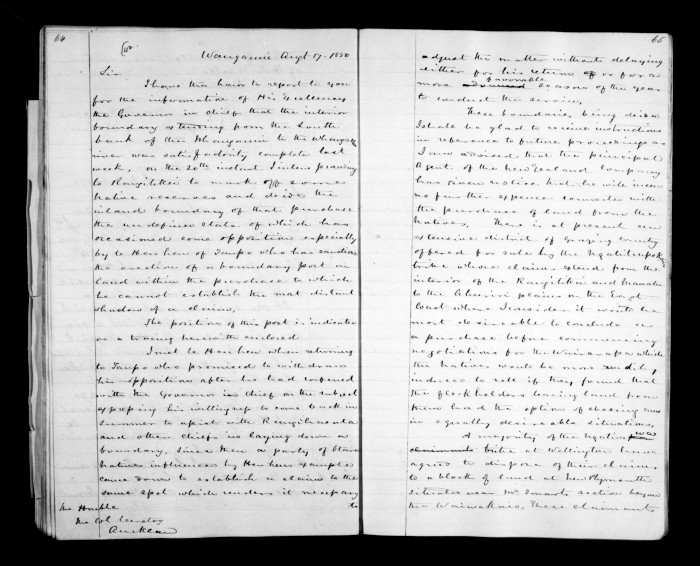 64
Wanganui Augt 17 - 1850
Sir
I have the honor to report to you
for the information of His Excellency
the Governor in chief that the interior
boundary extending from the South
bank of the Wanganui to the Wangaehu
river was satisfactorily complete last
week, on the 20th instant I intend proceeding
to Rangitikei to mark off some
native reserves and decide the
inland boundary of that purchase
the undefined state of which has
occasioned some opposition especially
by te Heu heu of Taupo who has sanctioned
the erection of a boundary post on
land within the purchase to which
he cannot establish the most distant
shadow of a claim,
The position of this post is indicated
on a tracing herewith enclosed
I met te Heu heu when returning
to Taupo who promised to withdraw
his opposition after he had conferred
with the Governor in chief on the subject
expressing his willingness to come back in
summer to assist with
and other chiefs in laying down a
boundary, Since then a party of
natives influenced by Heu heus example
came down to establish a claim to the
same spot which renders it necessary
to
The Honble
The Col Secretary
Auckland
65
adjust the matter without delaying
either for his return or for a
favorable
more season of the year
to conduct the service,
These boundaries being
I shall be glad to receive instructions
in reference to future proceedings as
I am advised that the principal
Agent of the New Zealand Company
has given notice that he will incur
no further expense connected with
the purchase of land from the
natives, There is at present an
extensive district of Grazing country
offered for sale by the
tribe whose claims extend from the
interior of the Rangitikei and Manawatu
to the Ahuriri plains on the East
Coast where I consider it would be
most desireable to conclude
a purchase before commencing
negotiations for the Wairarapa which
the natives would be more readily
induced to sell if they found that
the flockholders leasing land from
them had the option of choosing runs
in equally desireable situations,
A majority of the Ngatiawa
claimants tribe at Wellington have
agreed to dispose of their claims
to a block of land at New Plymouth
situated near Mr Smarts section beyond
the Waiwakaio, These claimants